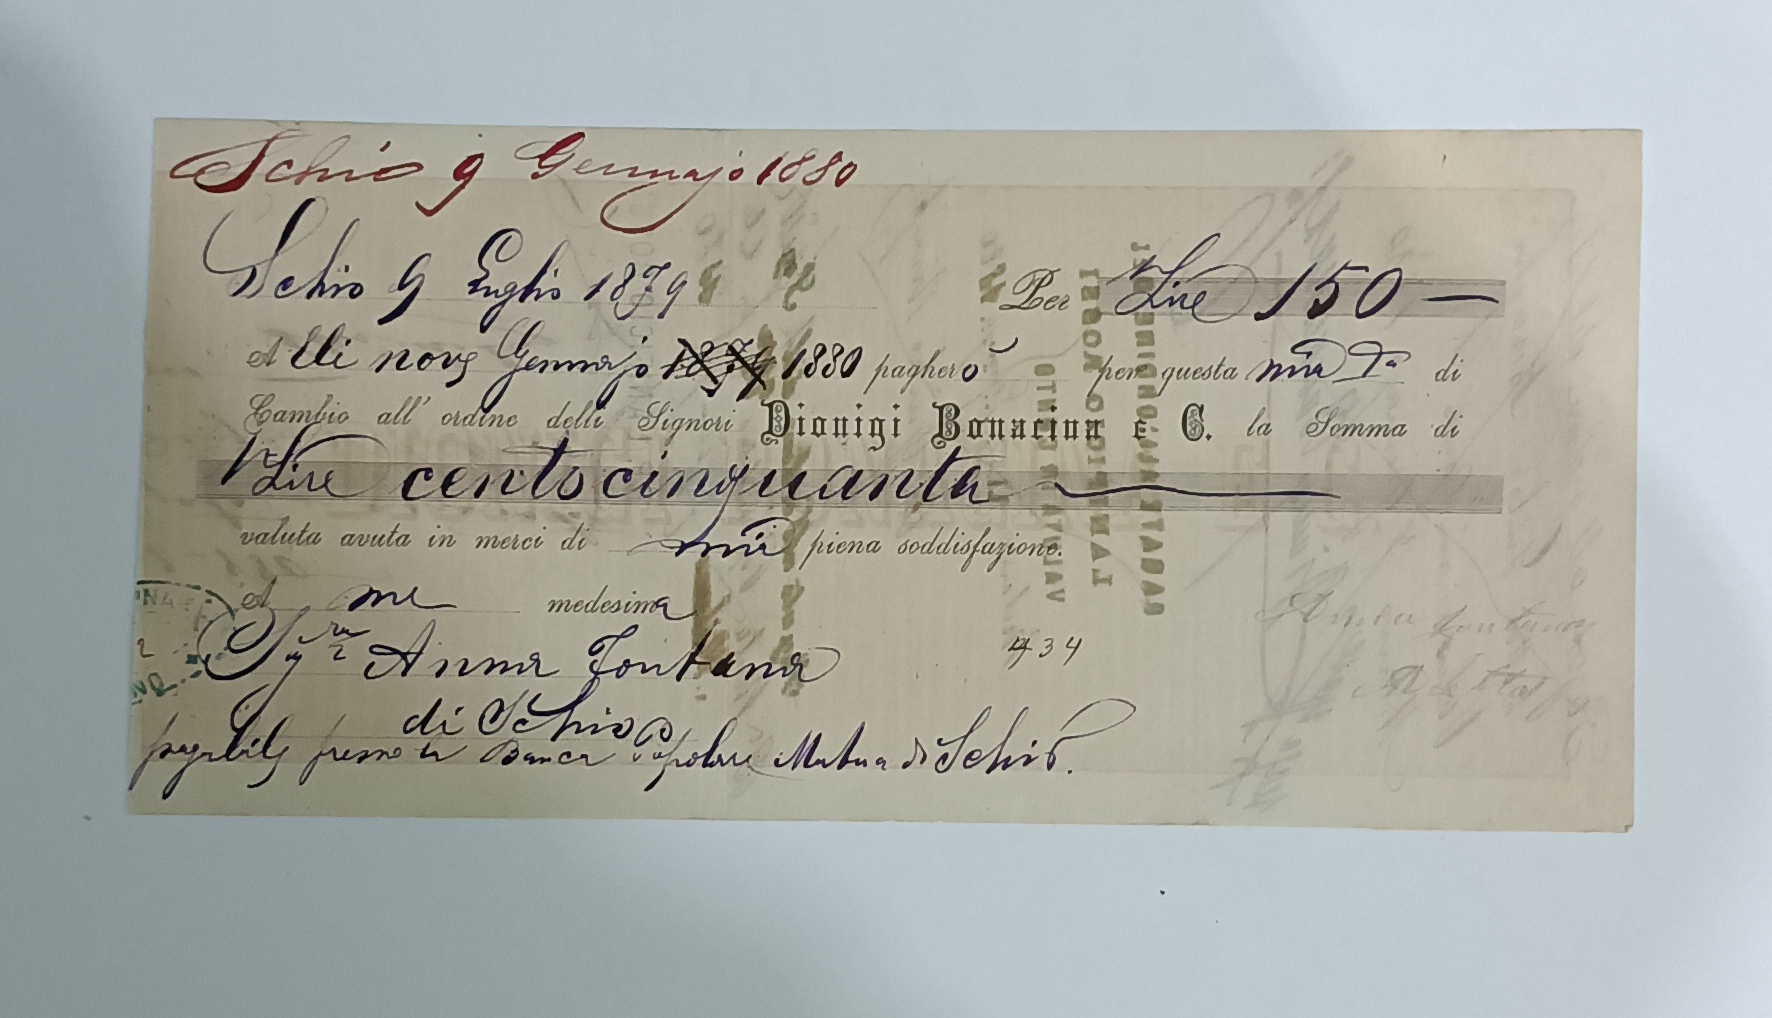 Schio 9 Gennajo 1880
Schio 9 Luglio 1879 Per Lire 150 —
Alli nove Gennajo 1879 1880 pagherò per questa mia di
Cambio all' ordine delli Signori Dionigi Bonacina e C. la Somma di
Lire centocinquanta
valuta avuta in merci di mia piena soddisfazione.
A me medesima
Sigra Anna Fontana 434
di Schio
pagabile presso la Banca Popolare Mutua di Schio.